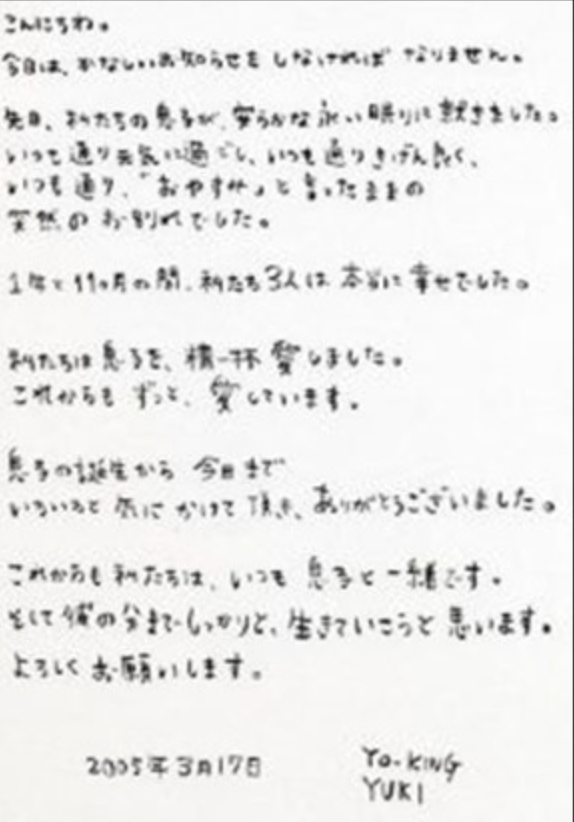 こんにちわ。
今日は、かなしいお知らせをしなければなりません。
先日、私たちの息子が、安らかな永い眠りに就きました。
いつも通り元気に過ごし、いつも通りきげん良く、
いつも通り、「おやすみ」と言ったままの
突然のお別れでした。
1年と11ヶ月の間、私たち3人は本当に幸せでした。
私たちは息子を、精一杯愛しました。
これからもずっと、愛しています。
息子の誕生から今日まで
いろいろと気にかけて頂き、ありがとうございました。
これからも私たちは、いつも息子と一緒です。
そして彼の分までしっかりと、生きていこうと思います。
よろしくお願いします。
2005年3月17日
YO-KING
YUKI